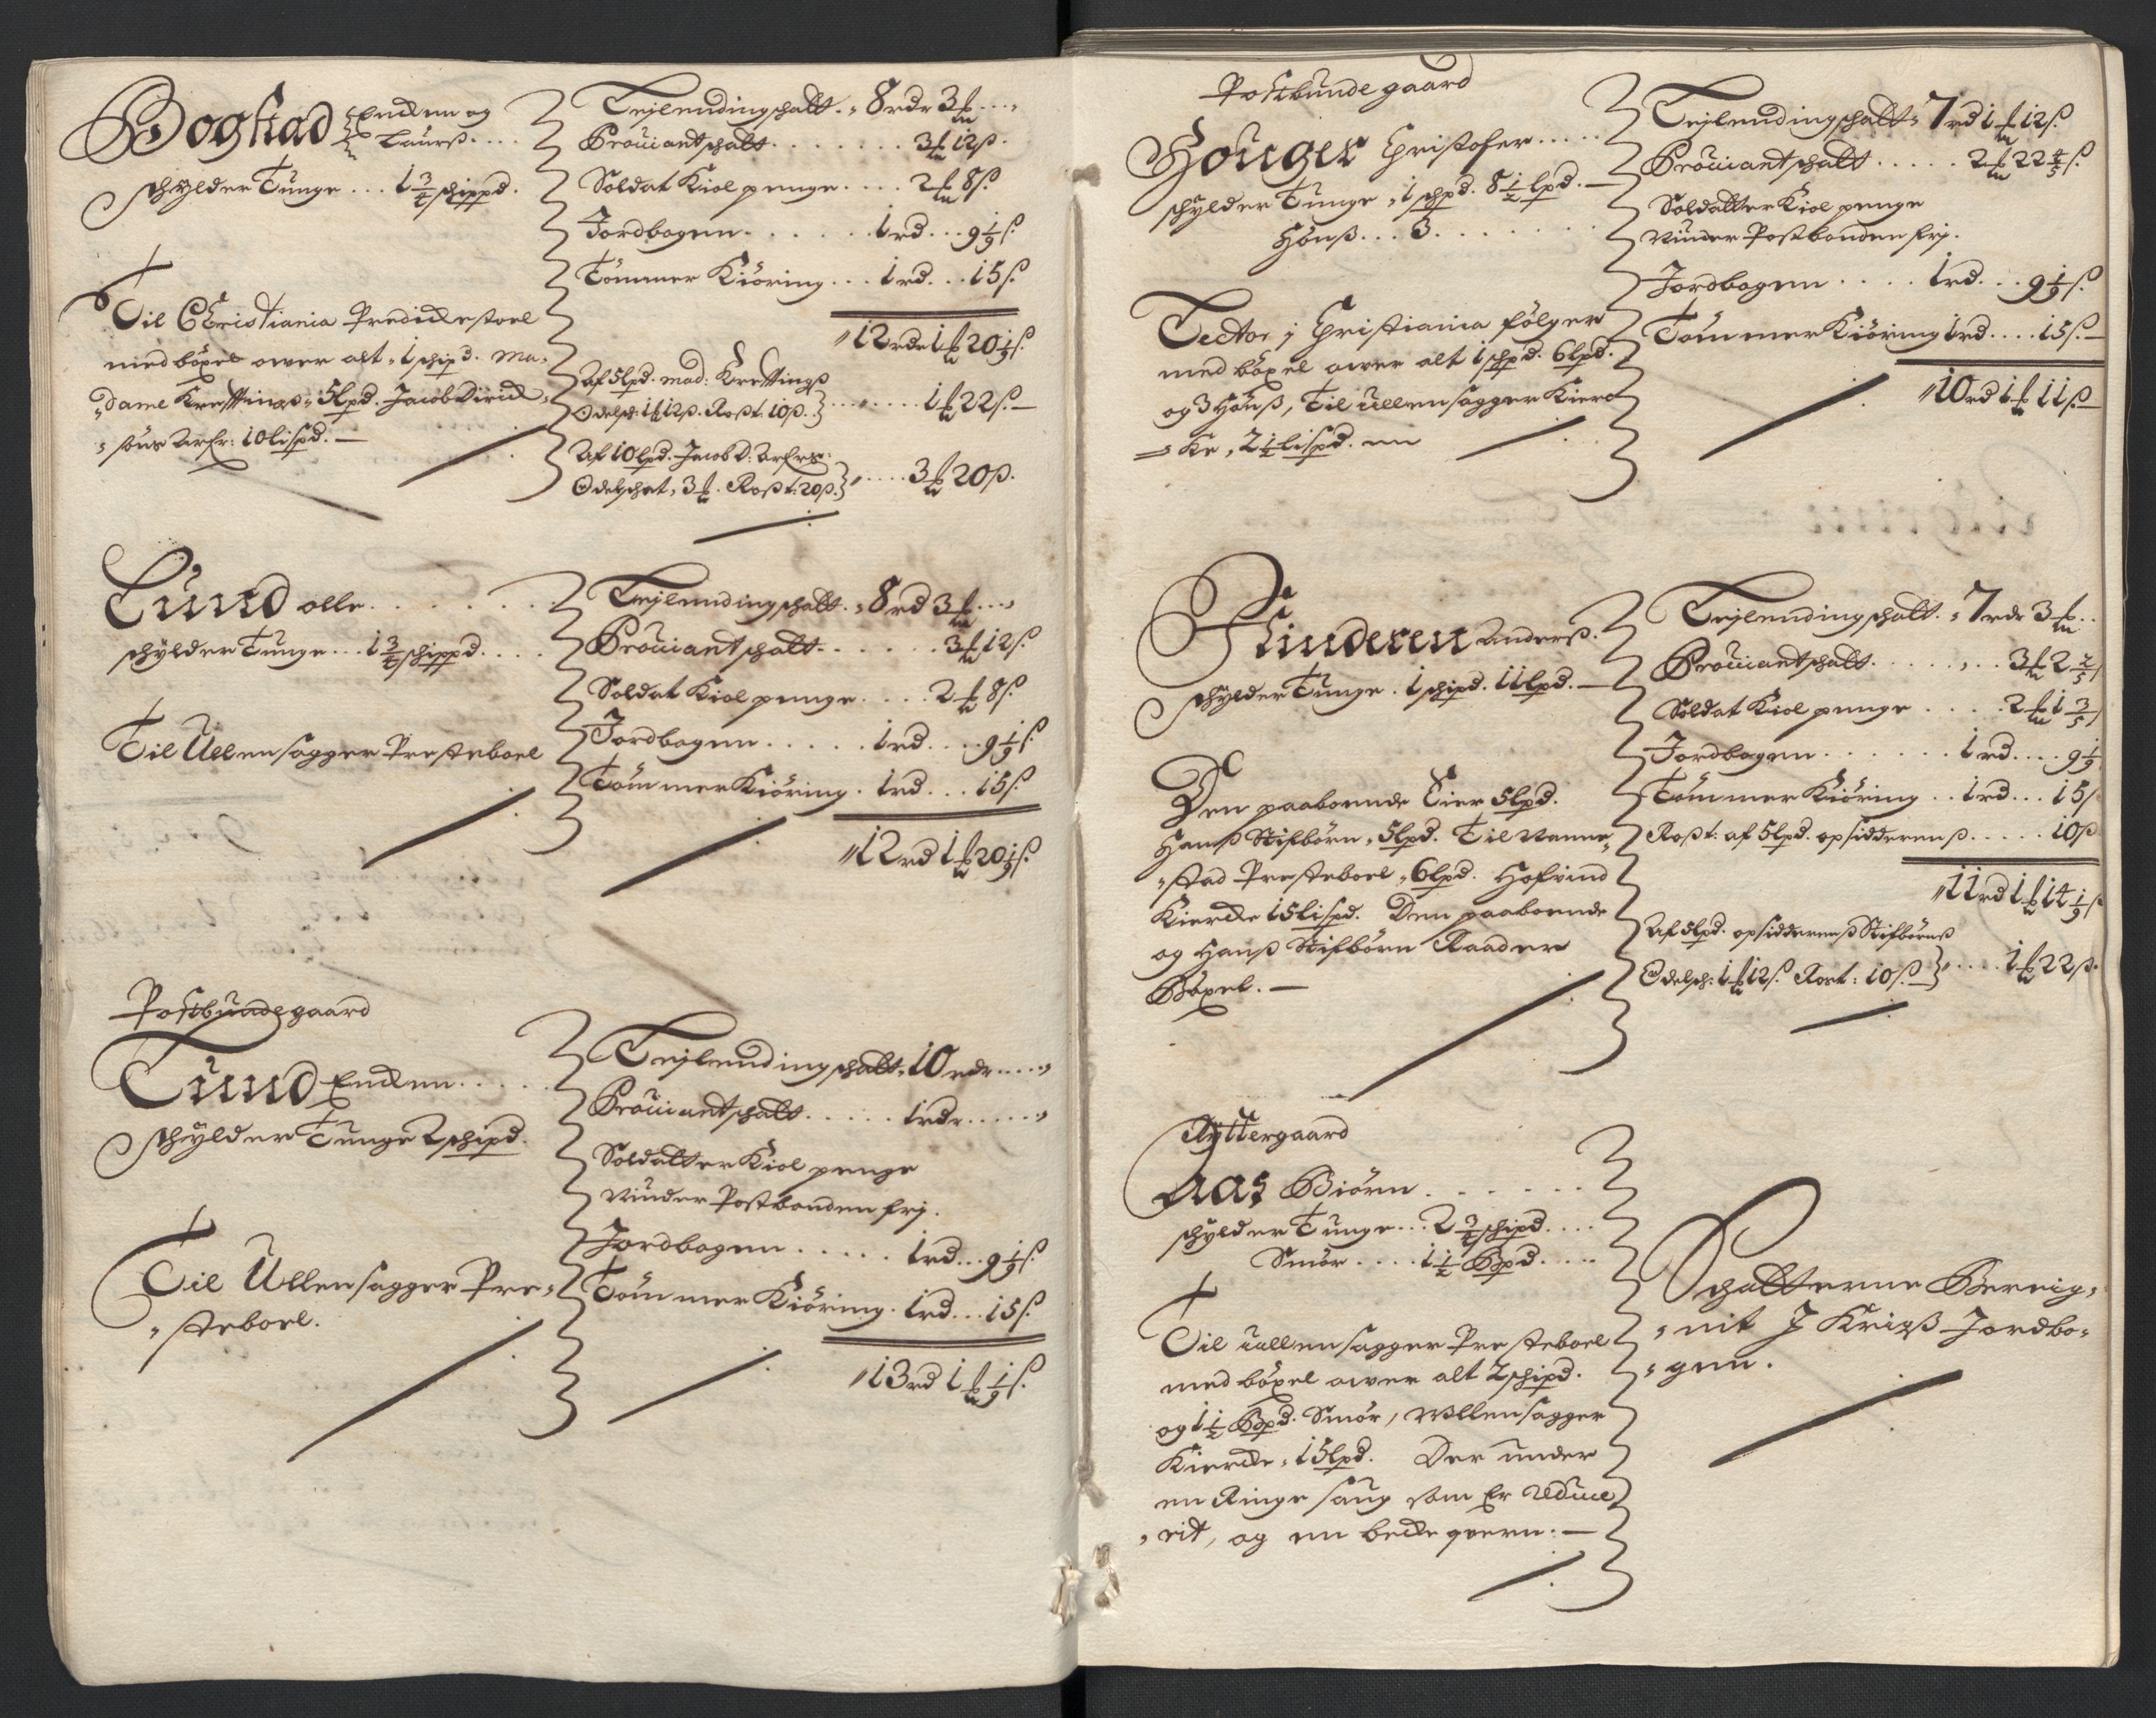 Bogstad Encken og
Laurß....
schylder Tunge ... 1 3/4 schippd.
Til Christiania Predickestoel
med böxel ower alt, 1 schipd. Ma-
dame Krefftings, 5 lpd. Jacob Dirick-
søns Arfr: 10 lispd. —
Tejlendingschatt. 8 rdr 3 ℔ ...
Proviantschatt ....... 3 ℔ 12 ß.
Soldat Kiol penge .... 2 ℔ 8 ß.
Jordbogen ...... 1 rd ... 9 1/9 ß.
Tömmer Kiöring ... 1 rd ... 15 ß.
12 rdr 1 ℔ 20 1/9 ß.
Af 5 lpd. Mad: Krefftings
Odelß: 1 ℔ 12 ß. Roßt: 10 ß. } ....... 1 ℔ 22 ß. —
Af 10 lpd. Jacob D: Arfrs:
Odelschat, 3 ℔. Roßt: 20 ß. } ..... 3 ℔ 20 ß.
Lund olle .......
schylder Tunge ... 1 3/4 schippd ....
Til Ullensagger Presteboel
Tejlendingschatt. 8 rd 3 ℔ ...
Proviantschatt ....... 3 ℔ 12 ß.
Soldat Kiol penge .... 2 ℔ 8 ß.
Jordbogen ..... 1 rd .... 9 1/9 ß.
Tömmer Kiöring . 1 rd ... 15 ß.
12 rd 1 ℔ 20 1/9 ß.
Postbunde gaard
Lund Encken .....
schylder Tunge 2 schipd.
Til Ullensagger Pre-
steboel.
Tejlendingschatt. 10 rdr .....
Proviantschatt ..... 1 rdr .....
Soldatter Kiol penge
under Postbonden frj.
Jordbogen ..... 1 rd ... 9 1/9 ß.
Tömmer Kiöring . 1 rd ... 15 ß.
13 rd 1 ℔ 1/9 ß.
Postbunde gaard
Houger Christofer .....
schylder Tunge, 1 schpd. 8 1/2 lpd. —
Hönß ... 3 .......
Lector j Christiania fölger
med böxel ower alt 1 schpd. 6 lpd.
og 3 Hönß, Til ullensagger Kierc-
ke, 2 1/2 lispd. en
Tejlendingschatt, 7 rd 1 ℔ 12 ß.
Proviantschatt ..... 2 ℔ 22 4/5 ß.
Soldatter Kiol penge
under Postbonden frj.
Jordbogen .... 1 rd ... 9 1/9 ß.
Tömmer Kiöring 1 rd .... 15 ß. —
10 rd 1 ℔ 11 ß. —
Kinderen Anderß.
schylder Tunge. 1 schipd. 11 lpd. —
Den paaboende Eier 5 lpd.
Hanß Stifbörn, 5 lpd. Til Nanne-
stad Presteboel, 6 lpd. Hofvind
Kiercke 15 lispd. Den paaboende
og Hanß Stifbörn Raader
Böxel. —
Tejlendingschatt. 7 rdr 3 ℔ ..
Proviantschatt ....... 3 ℔ 2 2/5
Soldat Kiol penge .... 2 ℔ 1 3/5
Jordbogen ...... 1 rd .... 9 1/9
Tömmer Kiöring .. 1 rd ... 15 ß
Roßt: af 5 lpd. opsidderenß ..... 10 ß
11 rd 1 ℔ 14 1/9 ß
Af 5 lpd. opsidderenß Stifbörnß
Odelsch: 1 ℔ 12 ß. Rost: 10 ß. } ..... 1 ℔ 22 ß.
Ryttergaard
Aas Biörn ......
schylder Tunge ... 2 3/4 schipd ....
Smör .... 1 1/2 Bpd ....
Til ullensagger Presteboel
med böxel ower alt 2 schipd.
og 1 1/2 Bpd. Smör, Wllensagger
Kiercke, 15 lpd. Der under
en Ringe saug som Er Reduce-
rit, og en becke qvern. —
Schatterne Bereig-
nit J Krigß Jordbo-
gen.